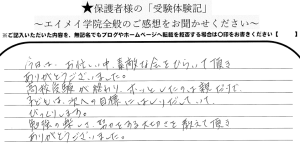 ★保護者様の「受験体験記」
～エイメイ学院全般のご感想をお聞かせください～
※ご記入いただいた内容を、無記名でもブログやホームページへ転載を拒否する場合は○印をお書きください【　　】
今日は、お忙しい中 素敵な会をひらいて頂き
ありがとうございました。
高校受験が終わり、ホッとしたのは親だけで、
子どもは、次への目標にはしりだしていて、
びっくりします。
勉強の楽しさ、努力する大切さを教えて頂き
ありがとうございました。